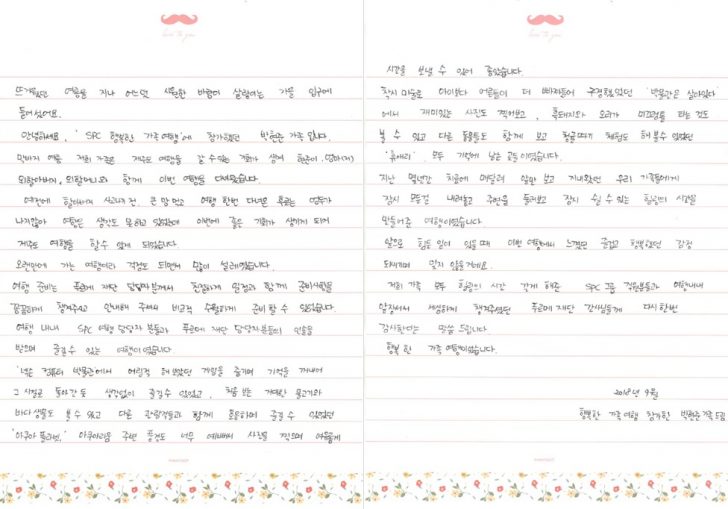 love to you
뜨거웠던 여름을 지나 어느덧 시원한 바람이 살랑이는 가을 입구에
들어섰어요.
안녕하세요. 'SPC 행복한 가족여행'에 참가했던 박현준 가족 입니다.
막바지 여름 저희 가족은 제주도 여행을 갈 수 있는 기회가 생겨 현준이, 엄마(저)
외할아버지, 외할머니와 함께 이번 여행을 다녀왔습니다.
예전에 할아버지 사고나기 전 큰 맘 먹고 여행 한번 다녀온 후로는 엄두가
나지않아 여행은 생각도 못하고 있었는데 이번에 좋은 기회가 생기게 되어
제주도 여행을 할 수 있게 되었습니다.
오랜만에 가는 여행이라 걱정도 되면서 많이 설레였습니다.
여행 준비는 푸르메 재단 담당자분께서 친절하게 일정과 함께 준비사항을
꼼꼼하게 챙겨주시고 안내해 주셔서 비교적 수월하게 준비할 수 있었습니다.
여행 내내 SPC 여행 담당자 분들과 푸르메 재단 담당자분들의 인솔을
받으며 즐길 수 있는 여행이였습니다.
'넥슨 컴퓨터 박물관'에서 어릴적 해 보았던 게임을 즐기며 기억을 꺼내어
그 시절로 돌아간 듯 생각없이 즐길수 있었고, 처음 보는 거대한 물고기와
바다생물도 볼 수 있고 다른 관람객들과 함께 호응하며 즐길 수 있었던
'아쿠아 플라넷,' 아쿠아리움 주변 풍경도 너무 예뻐서 사진을 찍으며 여유롭게
love to you
시간을 보낼 수 있어 좋았습니다.
착시 미술로 아이보다 어른들이 더 빠져들어 구경했었던 '박물관은 살아있다'
에서 재미있는 사진도 찍어보고, 흑돼지와 오리가 미끄럼틀 타는 것도
볼 수 있고 다른 동물들도 함께 보고 감귤따기 체험도 해 볼수 있었던
'휴애리'. 모두 기억에 남는 곳들이었습니다.
지난 몇년간 치료에 매달려 앞만 보고 지내왔던 우리 가족들에게
잠시 모든걸 내려놓고 주변을 둘러보고 잠시 쉴 수 있는 힐링의 시간을
만들어준 여행이었습니다.
앞으로 힘든 일이 있을 때 이번 여행에서 느꼈던 즐겁고 행복했던 감정
되새기며 잊지 않을거예요.
저희 가족 모두 힐링의 시간 갖게 해준 SPC 그룹 직원분들과 여행내내
앞장서서 세심하게 챙겨주셨던 푸르메 재단 간사님들께 다시한번
감사하다는 말씀 드립니다.
행복한 가족여행이었습니다.
2018년 9월
행복한 가족여행 참가한 박현준가족 드림